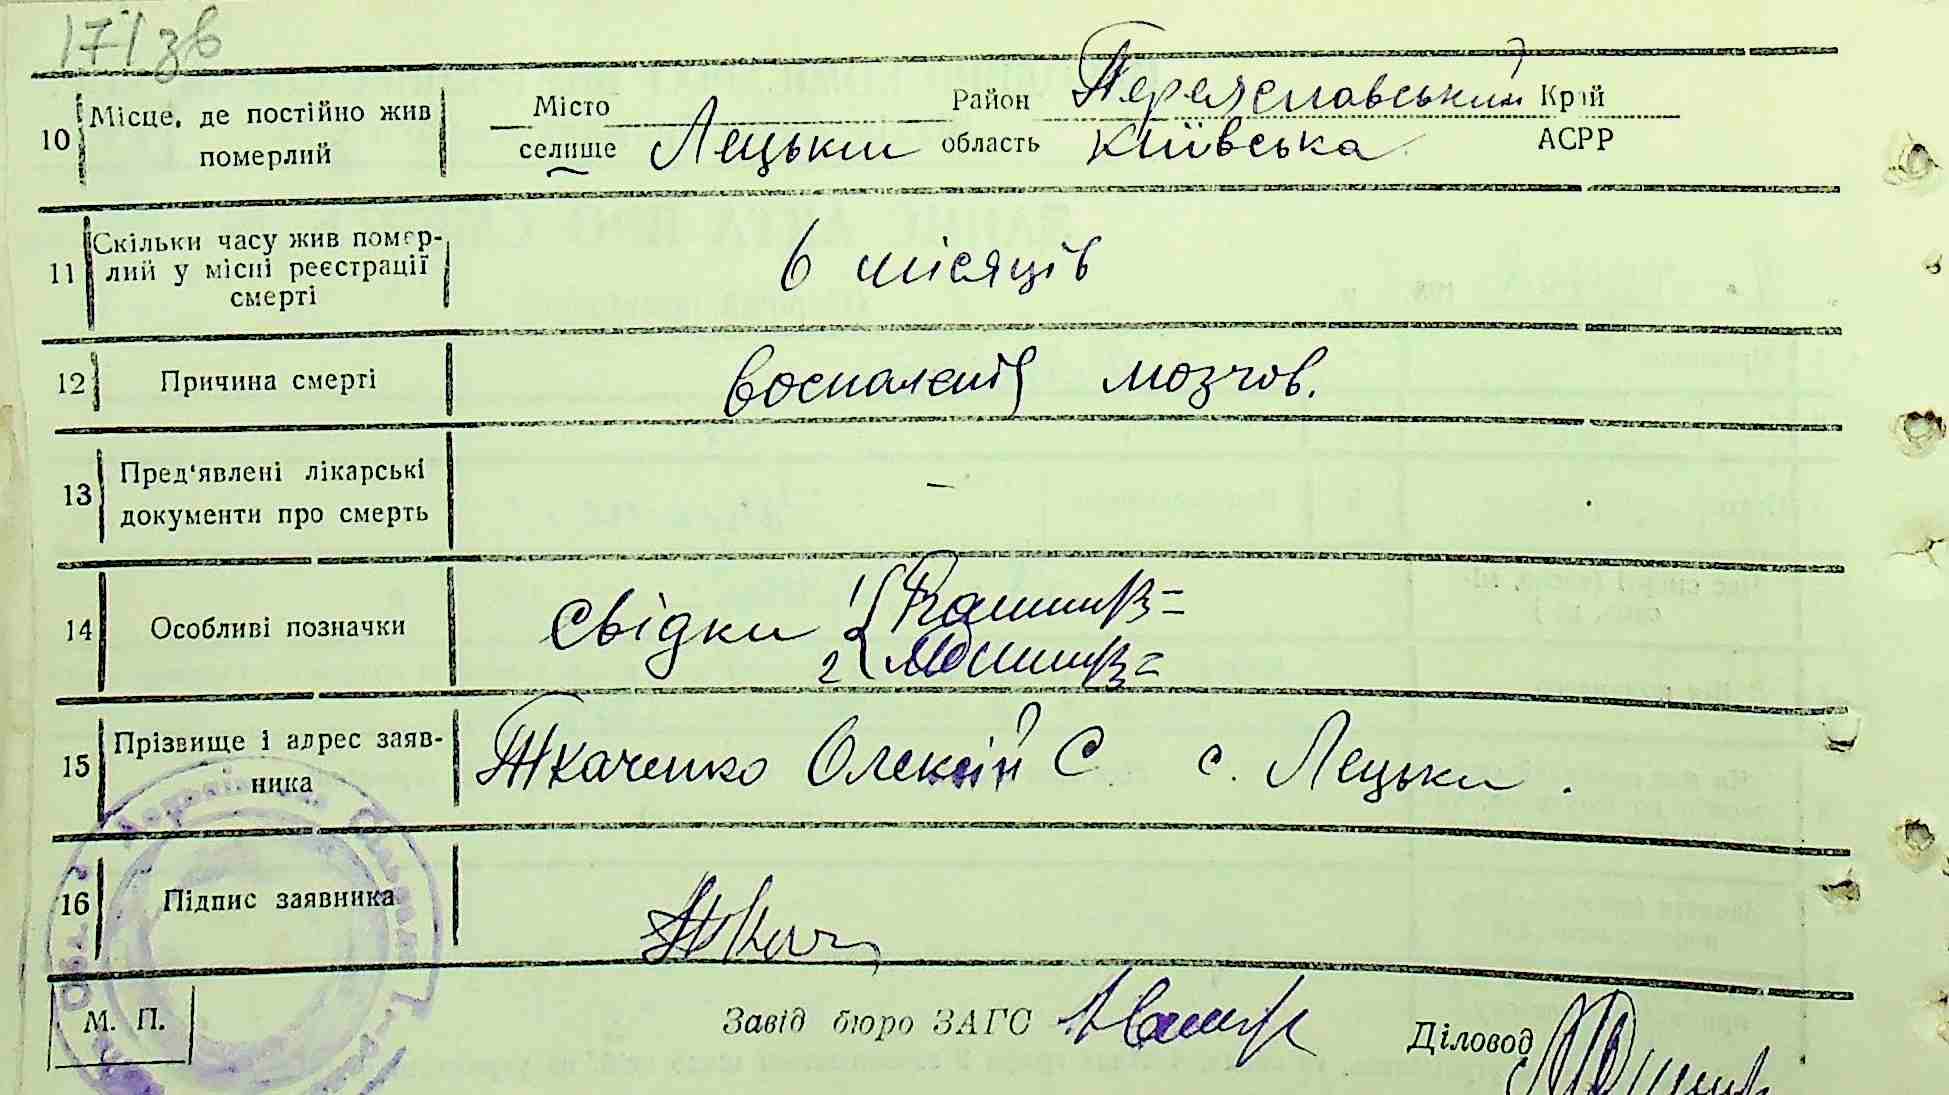 171 зв
10 Місце, де постійно жив померлий
Місто Район Переяславський Край
селище Лецьки область Київська АСРР
11 Скільки часу жив помер-
лий у місці реєстрації
смерті
6 місяців
12 Причина смерті воспаленія мозчов.
13 Пред'явлені лікарські
документи про смерть
-
14 Особливі позначки Свідки 1
2
15 Прізвище і адрес заяв-
ника
Ткаченко Олексій С. с. Лецьки.
16 Підпис заявника Ткач
М. П. Завід бюро ЗАГС Діловод